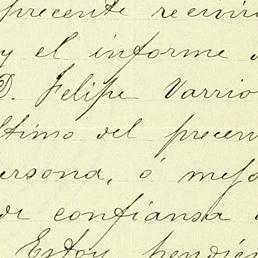 precente recivir
y el informe
D. Felipe Varrio
ltimo del precen
ersona, ó mejo
de confiansa
Estoy pendien